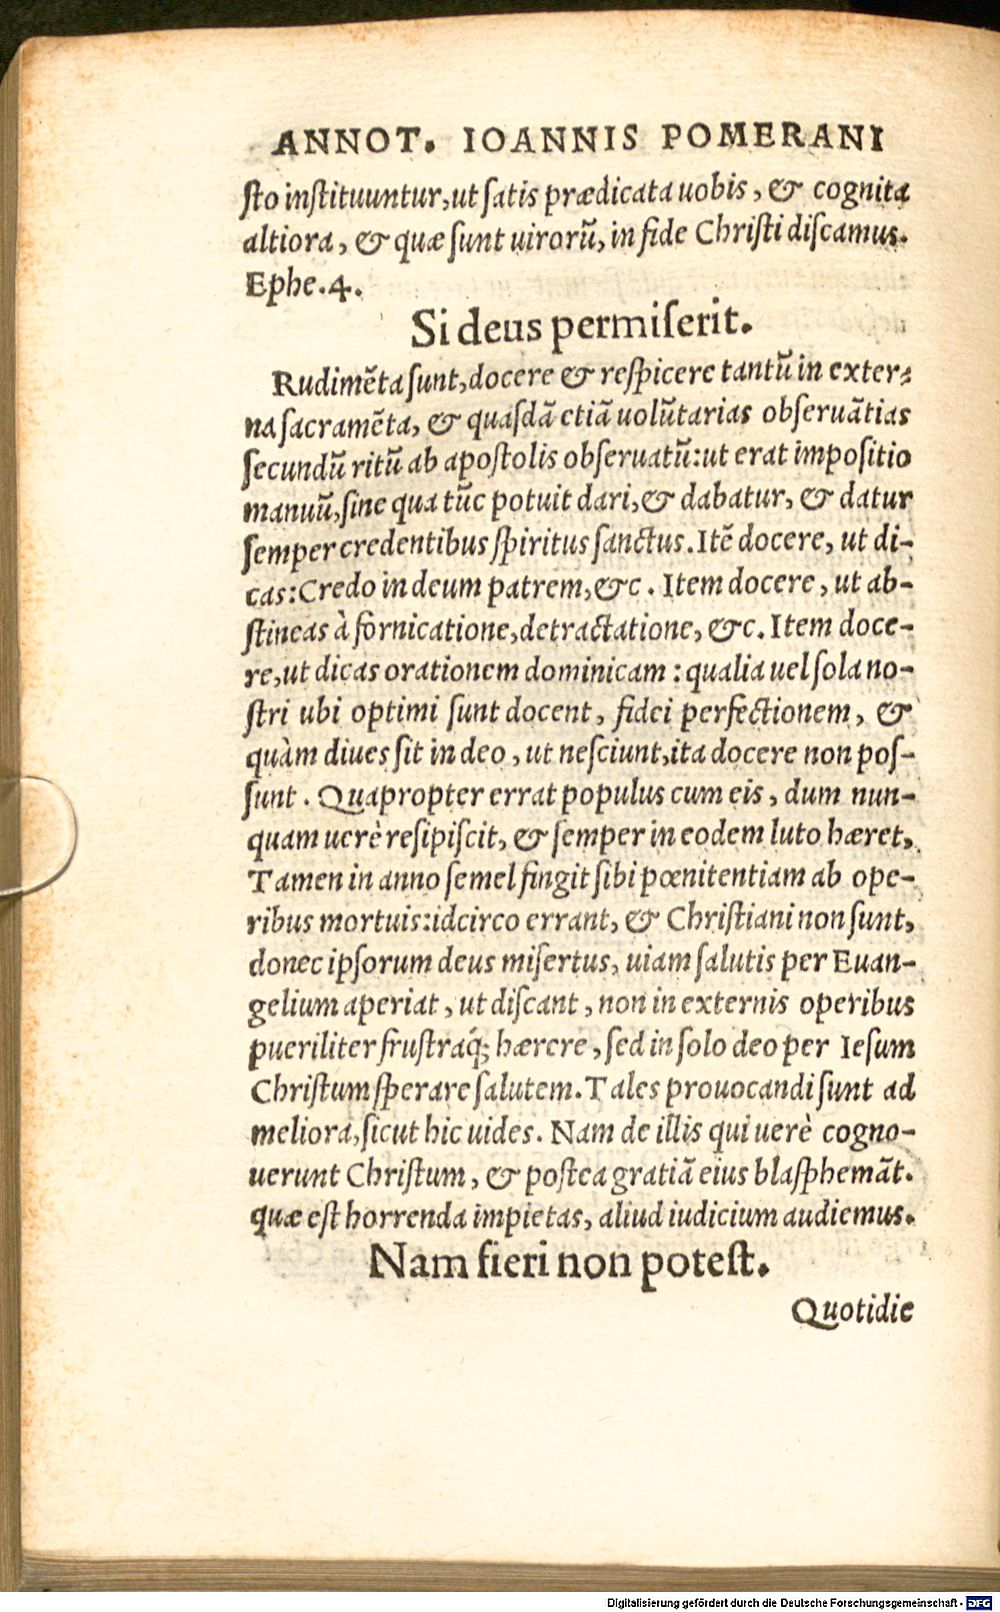 ANNOT. IOANNIS POMERANI
ſto inſtituuntur, ut ſatis prædicata uobis, & cognita
altiora, & quæ ſunt uirorū, in fide Chriſti diſcamus.
Ephe.4.
Si deus permiſerit.
Rudimēta ſunt, docere & reſpicere tantū in exter-
na ſacramēta, & quaſdā etiā uolūtarias obſeruātias
ſecundū ritū ab apoſtolis obſeruatū: ut erat impoſitio
manuū, ſine qua tūc potuit dari, & dabatur, & datur
ſemper credentibus ſpiritus ſanctus. Itē docere, ut di-
cas: Credo in deum patrem, &c. Item docere, ut ab-
ſtineas à fornicatione, detractatione, &c. Item doce-
re, ut dicas orationem dominicam: qualia uel ſola no-
ſtri ubi optimi ſunt docent, fidei perfectionem, &
quàm diues ſit in deo, ut neſciunt, ita docere non poſ-
ſunt. Quapropter errat populus cum eis, dum nun-
quam uerè reſipiſcit, & ſemper in eodem luto hæret,
Tamen in anno ſemel fingit ſibi pœnitentiam ab ope-
ribus mortuis: idcirco errant, & Chriſtiani non ſunt,
donec ipſorum deus miſertus, uiam ſalutis per Euan-
gelium aperiat, ut diſcant, non in externis operibus
pueriliter fruſtráq; hærere, ſed in ſolo deo per Ieſum
Chriſtum ſperare ſalutem. Tales prouocandi ſunt ad
meliora, ſicut hic uides. Nam de illis qui uerè cogno-
uerunt Chriſtum, & poſtea gratiā eius blaſphemāt.
quæ eſt horrenda impietas, aliud iudicium audiemus.
Nam fieri non poteſt.
Quotidie
Digitalisierung gefördert durch die Deutsche Forschungsgemeinschaft - DFG